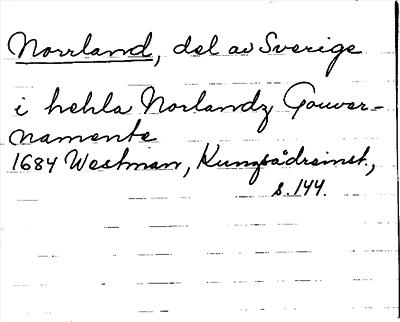 Norrland, del av Sverige
i hehla Norlandz Gouver-
namente
1684 Westman, Kungsådreinst.,
s. 144.